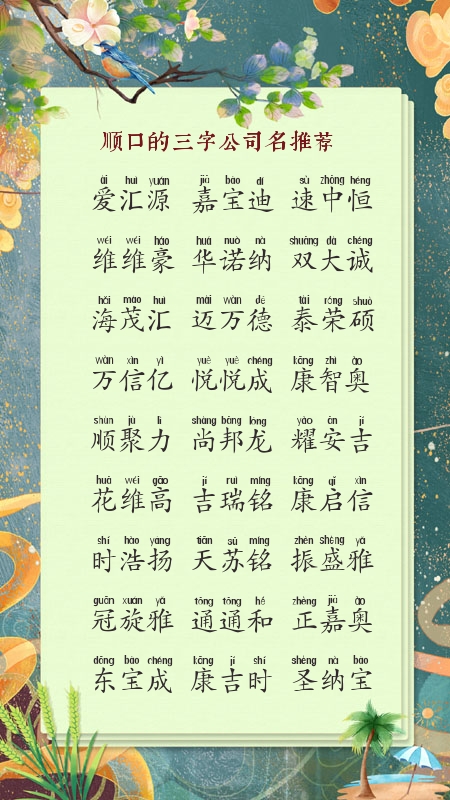 顺口的三字公司名推荐
ài huì yuán jiā bǎo dí sù zhōng héng
爱汇源 嘉宝迪 速中恒
wéi wéi háo huá nuò nà shuāng dà chéng
维维豪 华诺纳 双大诚
hǎi mào huì mài wàn dé tài róng shuò
海茂汇 迈万德 泰荣硕
wàn xìn yì yuè yuè chéng kāng zhì ào
万信亿 悦悦成 康智奥
shùn jù lì shàng bāng lóng yào ān jí
顺聚力 尚邦龙 耀安吉
huā wéi gāo jí ruì míng kāng qǐ xìn
花维高 吉瑞铭 康启信
shí hào yáng tiān sū míng zhèn shèng yǎ
时浩扬 天苏铭 振盛雅
guān xuán yǎ tōng tōng hé zhèng jiā ào
冠旋雅 通通和 正嘉奥
dōng bǎo chéng kāng jí shí shèng nà bǎo
东宝成 康吉时 圣纳宝